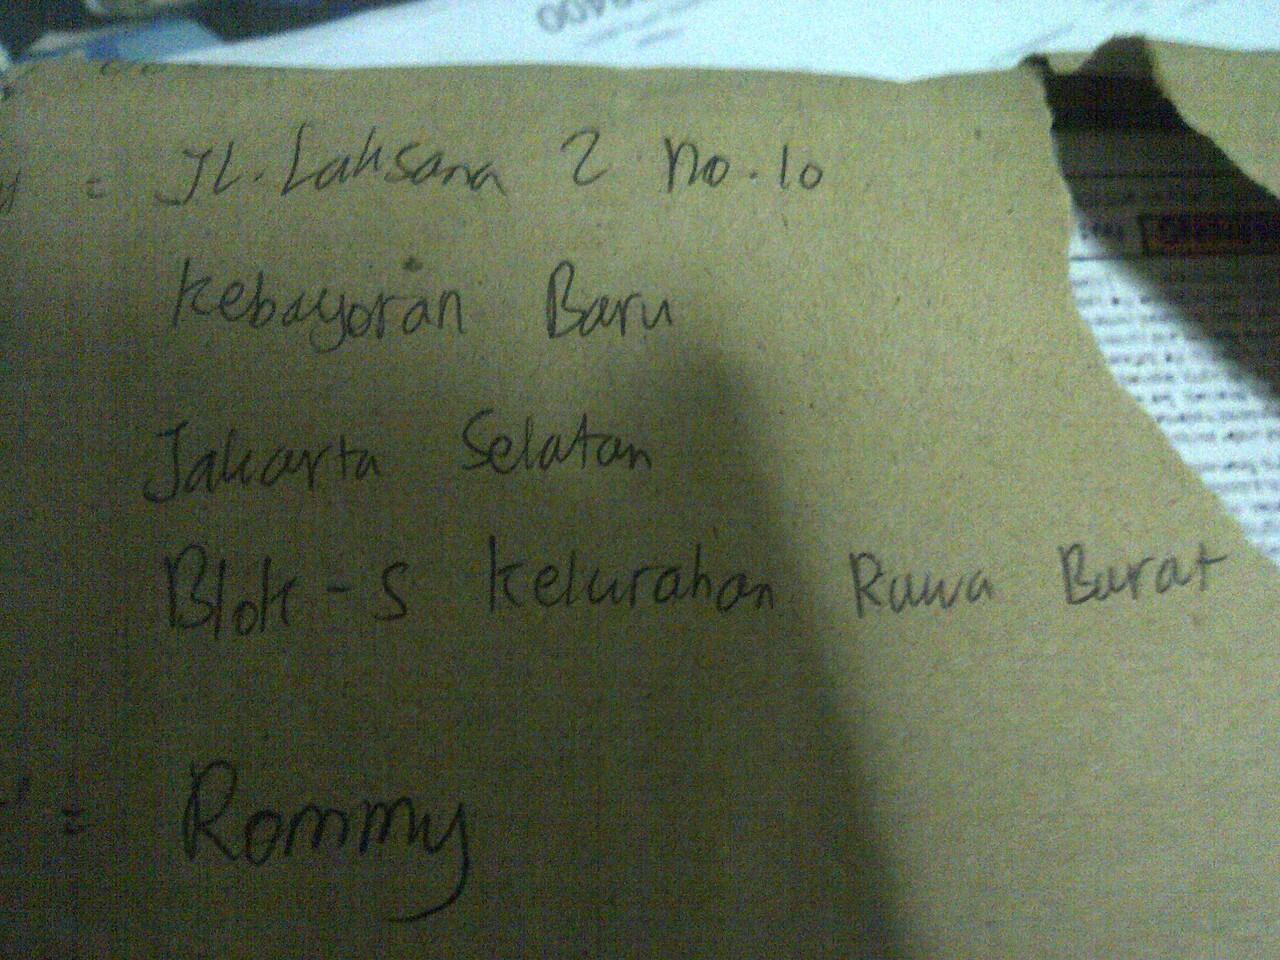 = JL. Laksana 2 No. 10
Kebayoran Baru
Jakarta Selatan
Blok - S Kelurahan Rawa Barat
= Rommy